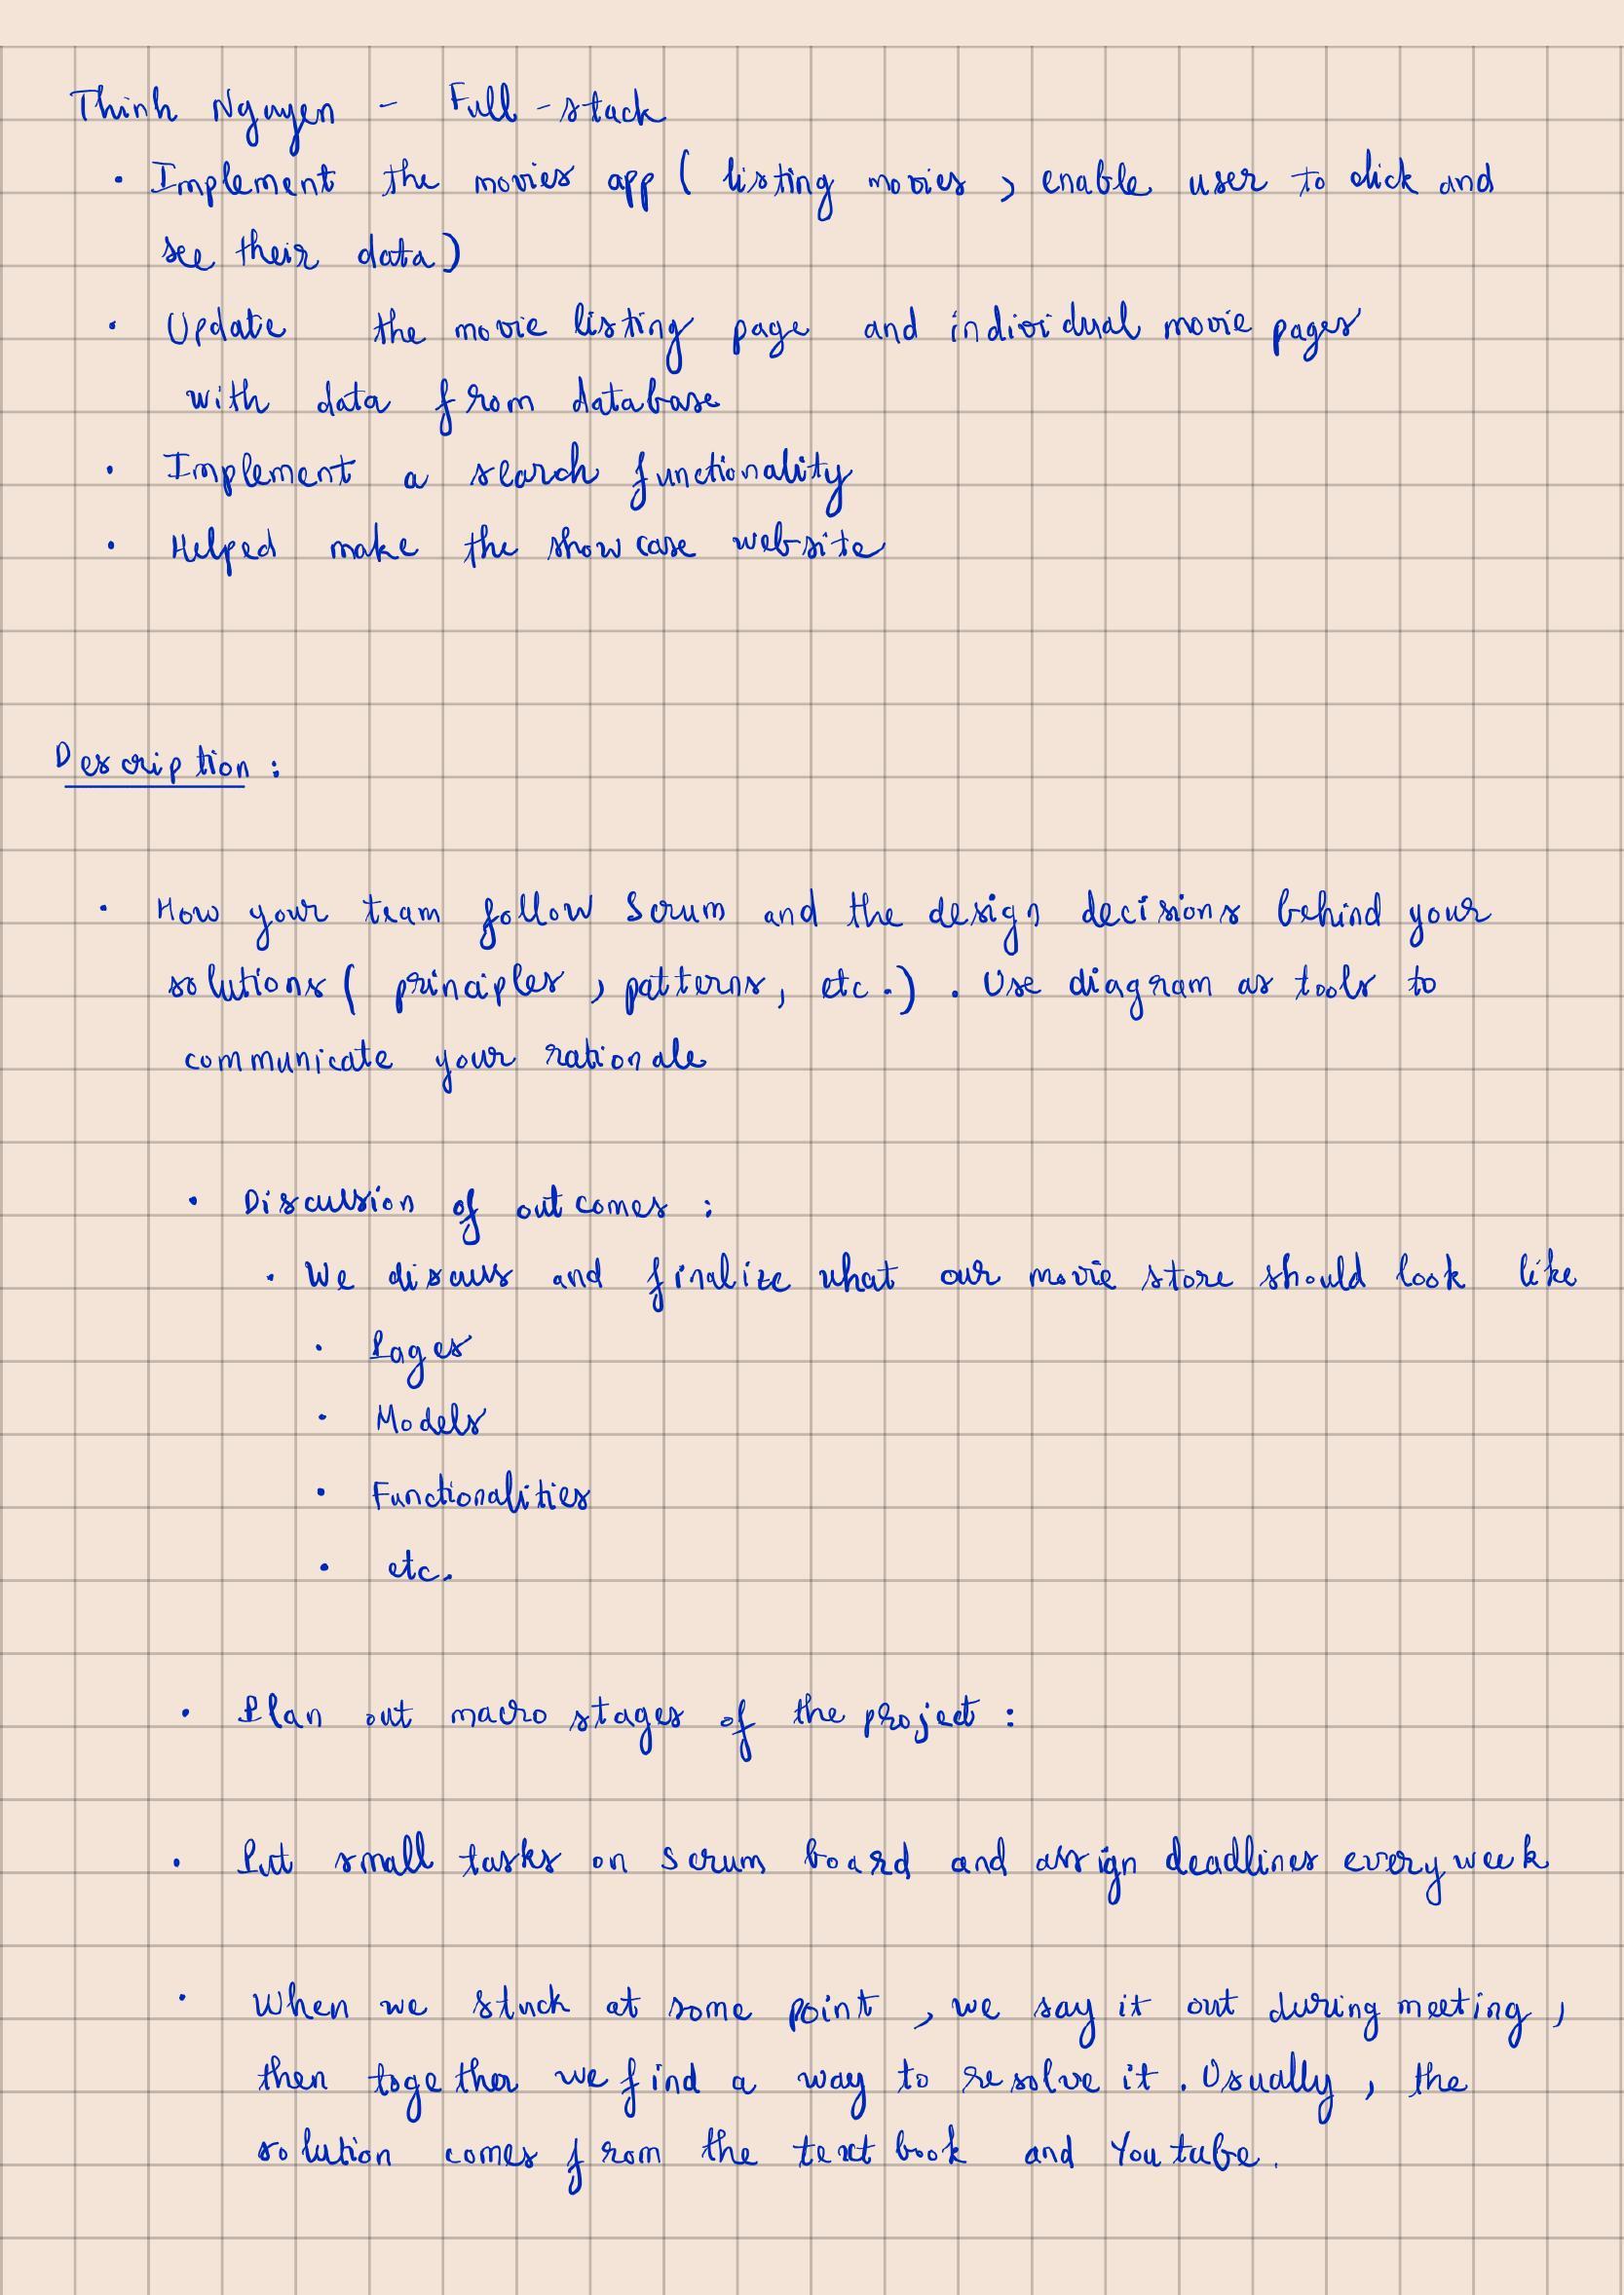 Thinh Nguyen - Full-stack
• Implement the movies app ( listing movies , enable user to click and
see their data)
• Update the movie listing page and individual movie pages
with data from database
• Implement a search functionality
• Helped make the showcase website
Description :
• How your team follow Scrum and the design decisions behind your
solutions ( principles , patterns, etc.) . Use diagram as tools to
communicate your rationale
• Discussion of outcomes :
• We discuss and finalize what our movie store should look like
• Pages
• Models
• Functionalities
• etc.
• Plan out macro stages of the project :
• Put small tasks on scrum board and assign deadlines every week
• When we stuck at some point , we say it out during meeting ,
then together we find a way to resolve it . Usually , the
solution comes from the textbook and Youtube.